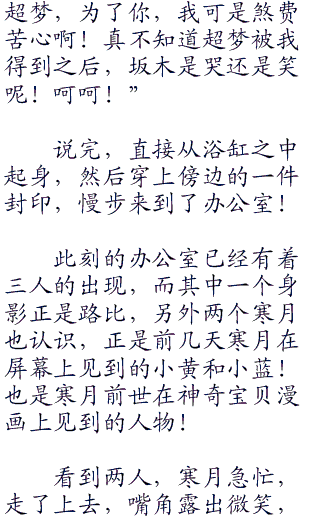 超梦，为了你，我可是煞费
苦心啊！真不知道超梦被我
得到之后，坂木是哭还是笑
呢！呵呵！”
说完，直接从浴缸之中
起身，然后穿上傍边的一件
封印，慢步来到了办公室！
此刻的办公室已经有着
三人的出现，而其中一个身
影正是路比，另外两个寒月
也认识，正是前几天寒月在
屏幕上见到的小黄和小蓝！
也是寒月前世在神奇宝贝漫
画上见到的人物！
看到两人，寒月急忙，
走了上去，嘴角露出微笑，